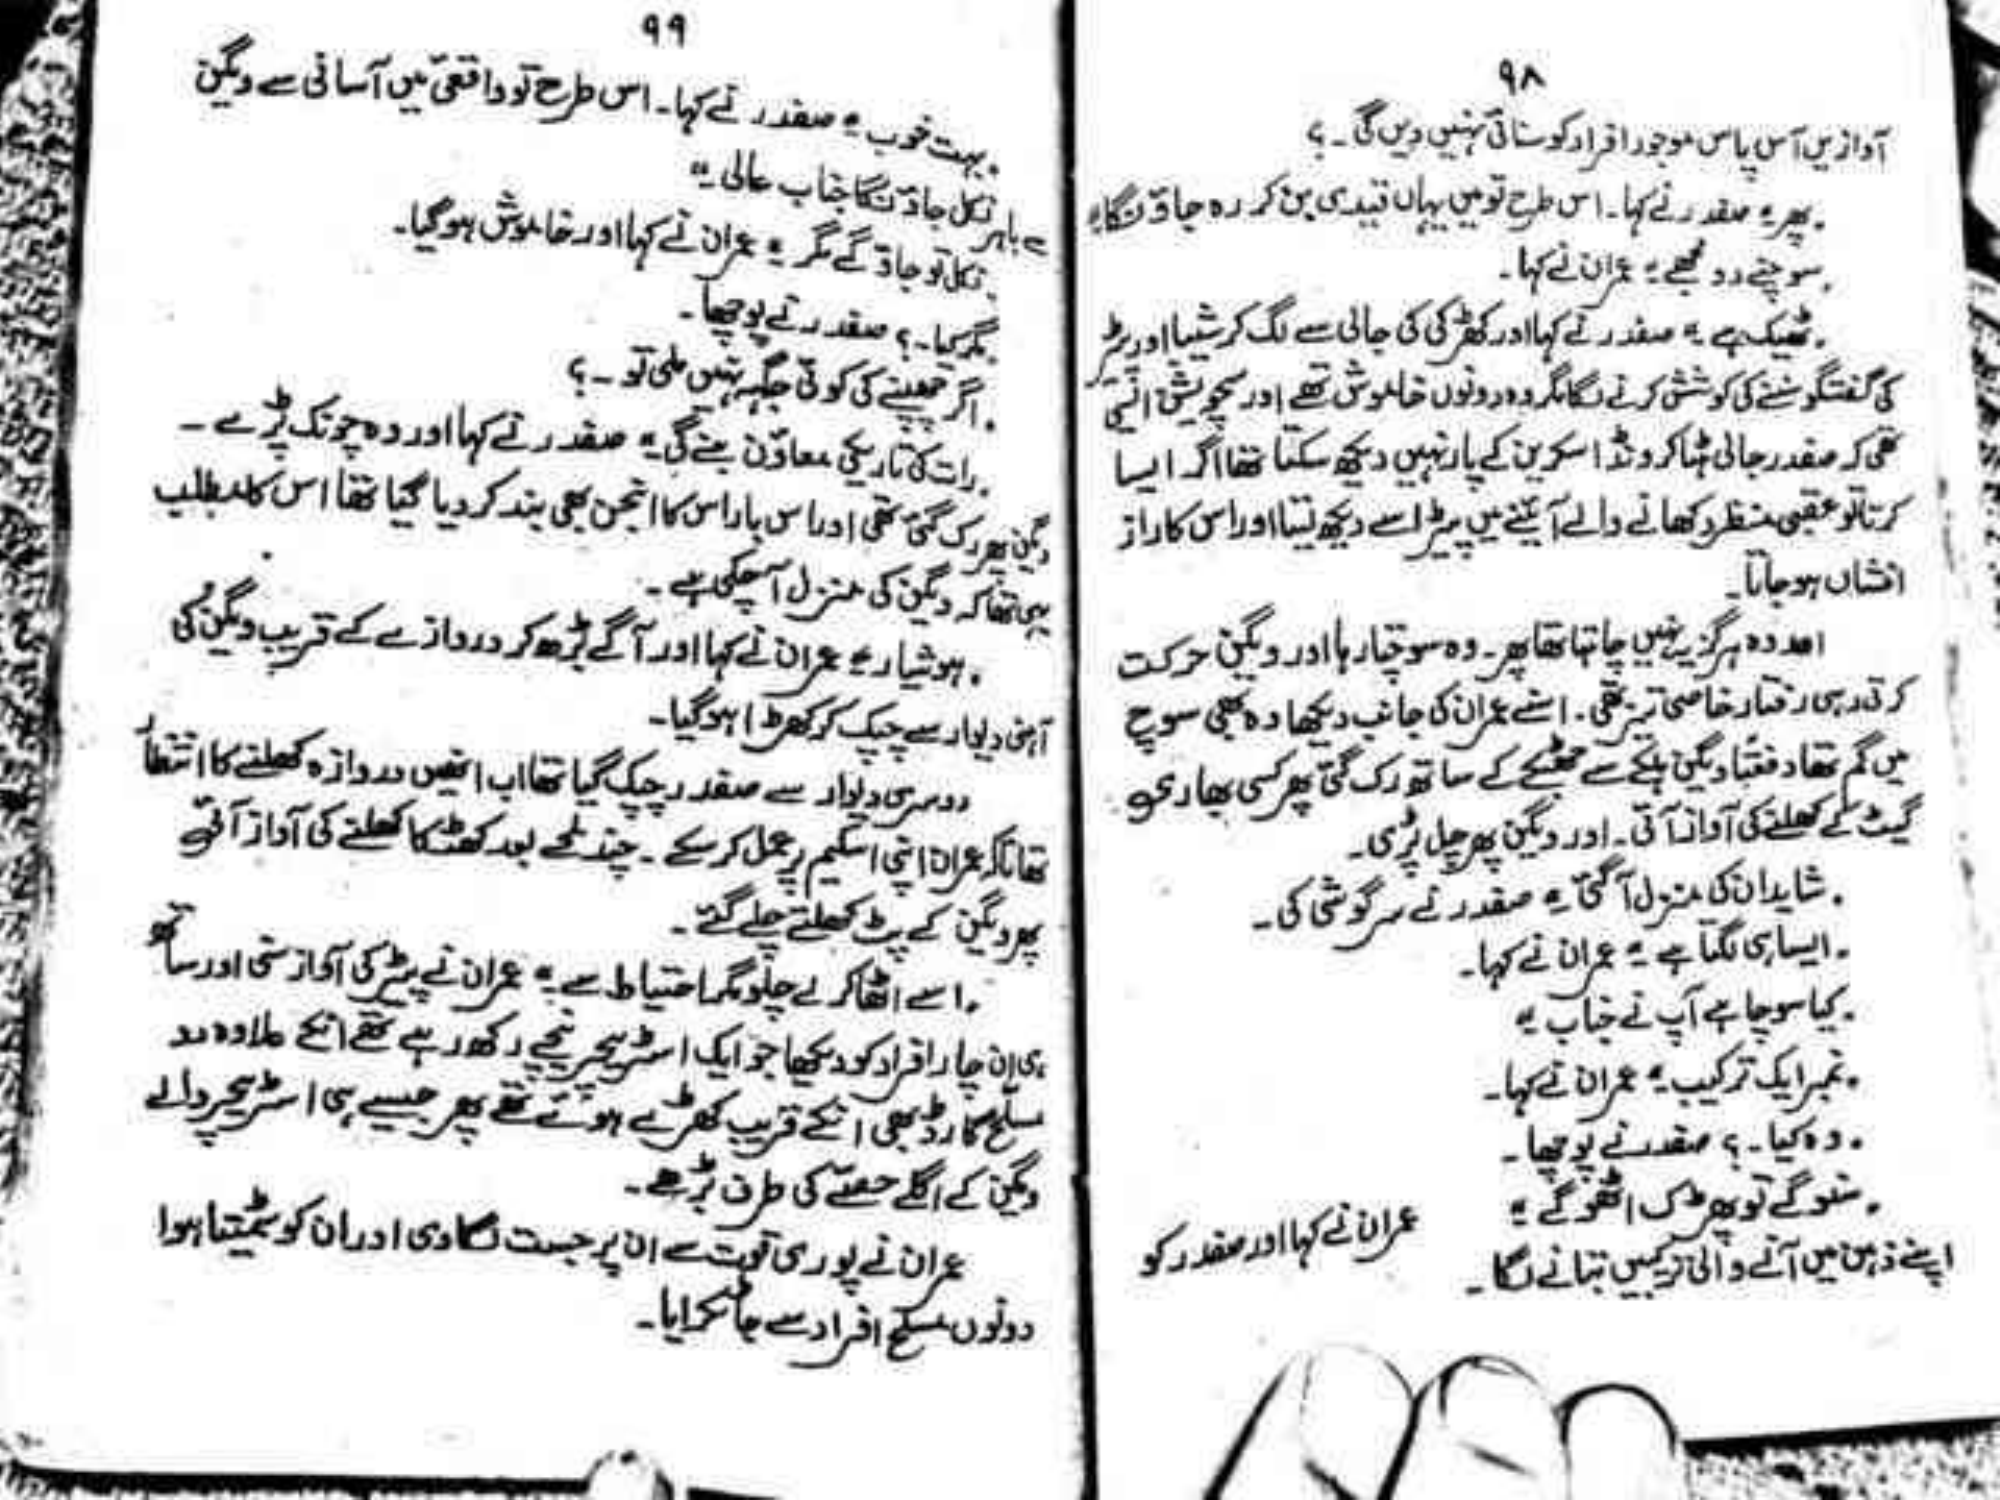 ۹۸
آوازیں آس پاس موجود افراد کو سنائی نہیں دیں گی ۔ ؟
۔ پھر ؎ صفدر نے کہا۔ اس طرح تو میں یہاں قیدی بن کر رہ جاؤں گا ؎
۔ سوچنے دو مجھے ؎ عمران نے کہا ۔
۔ ٹھیک ہے ؎ صفدر نے کہا اور کھڑکی کی جالی سے لگ کر شیبا اور پیٹر
کی گفتگو سننے کی کوشش کرنے لگا مگر وہ دونوں خاموش تھے اور سچویشن ایسی
تھی کہ صفدر جالی ہٹا کر ونڈ اسکرین کے پار نہیں دیکھ سکتا تھا اگر ایسا
کرتا تو عقبی منظر دکھانے والے آئینے میں پیٹر اسے دیکھ لیتا اور اس کا راز
افشاں ہو جاتا ۔
اور وہ ہرگز یہ نہیں چاہتا تھا پھر ۔ وہ سوچتا رہا اور ویگن حرکت
کرتی رہی رفتار خاصی تیز تھی ۔ اسنے عمران کی جانب دیکھا وہ بھی سوچ
میں گم تھا دفعتاً ویگن ہلکے سے جھٹکے کے ساتھ رک گئی پھر کسی بھاری
گیٹ کے کھلنے کی آواز آئی ۔ اور ویگن پھر چل پڑی ۔
۔ شاید ان کی منزل آ گئی ؎ صفدر نے سرگوشی کی ۔
۔ ایسا ہی لگتا ہے ؎ عمران نے کہا ۔
۔ کیا سوچا ہے آپ نے جناب ؎
۔ نمبر ایک ترکیب ؎ عمران نے کہا ۔
۔ وہ کیا ۔ ؟ صفدر نے پوچھا ۔
۔ سنو گے تو پھڑک اٹھو گے ؎ عمران نے کہا اور صفدر کو
اپنے ذہن میں آنے والی ترکیبیں بتانے لگا ۔
۹۹
۔ بہت خوب ؎ صفدر نے کہا ۔ اس طرح تو واقعی میں آسانی سے ویگن
سے باہر نکل جاؤں گا جناب عالی ؎
۔ نکل تو جاؤ گے مگر ؎ عمران نے کہا اور خاموش ہو گیا ۔
۔ مگر کیا ۔ ؟ صفدر نے پوچھا ۔
۔ اگر چھپنے کی کوئی جگہ نہیں ملی تو ۔ ؟
۔ رات کی تاریکی معاون بنے گی ؎ صفدر نے کہا اور وہ چونک پڑے ۔
ویگن پھر رک گئی تھی اور اس بار اس کا انجن بھی بند کر دیا گیا تھا اس کا مطلب
یہی تھا کہ ویگن کی منزل آ چکی ہے ۔
۔ ہوشیار ؎ عمران نے کہا اور آگے بڑھ کر دروازے کے قریب ویگن کی
آہنی دیوار سے چپک کر کھڑا ہو گیا ۔
دوسری دیوار سے صفدر چپک گیا تھا اب انھیں دروازہ کھلنے کا انتظار
تھا تاکہ عمران اپنی اسکیم پر عمل کر سکے ۔ چند لمحے بعد کھٹکا کھلنے کی آواز آئی
پھر ویگن کے پٹ کھلتے چلے گئے ۔
۔ اسے اٹھا کر لے چلو مگر احتیاط سے ؎ عمران نے پیٹر کی آواز سنی اور ساتھ
ہی ان چار افراد کو دیکھا جو ایک اسٹریچر نیچے رکھ رہے تھے انکے علاوہ دو
مسلح گارڈ بھی انکے قریب کھڑے ہوئے تھے پھر جیسے ہی اسٹریچر والے
ویگن کے اگلے حصے کی طرف بڑھے ۔
عمران نے پوری قوت سے ان پر جست لگا دی اور ان کو سمیٹتا ہوا
دونوں مسلح افراد سے جا ٹکرایا ۔